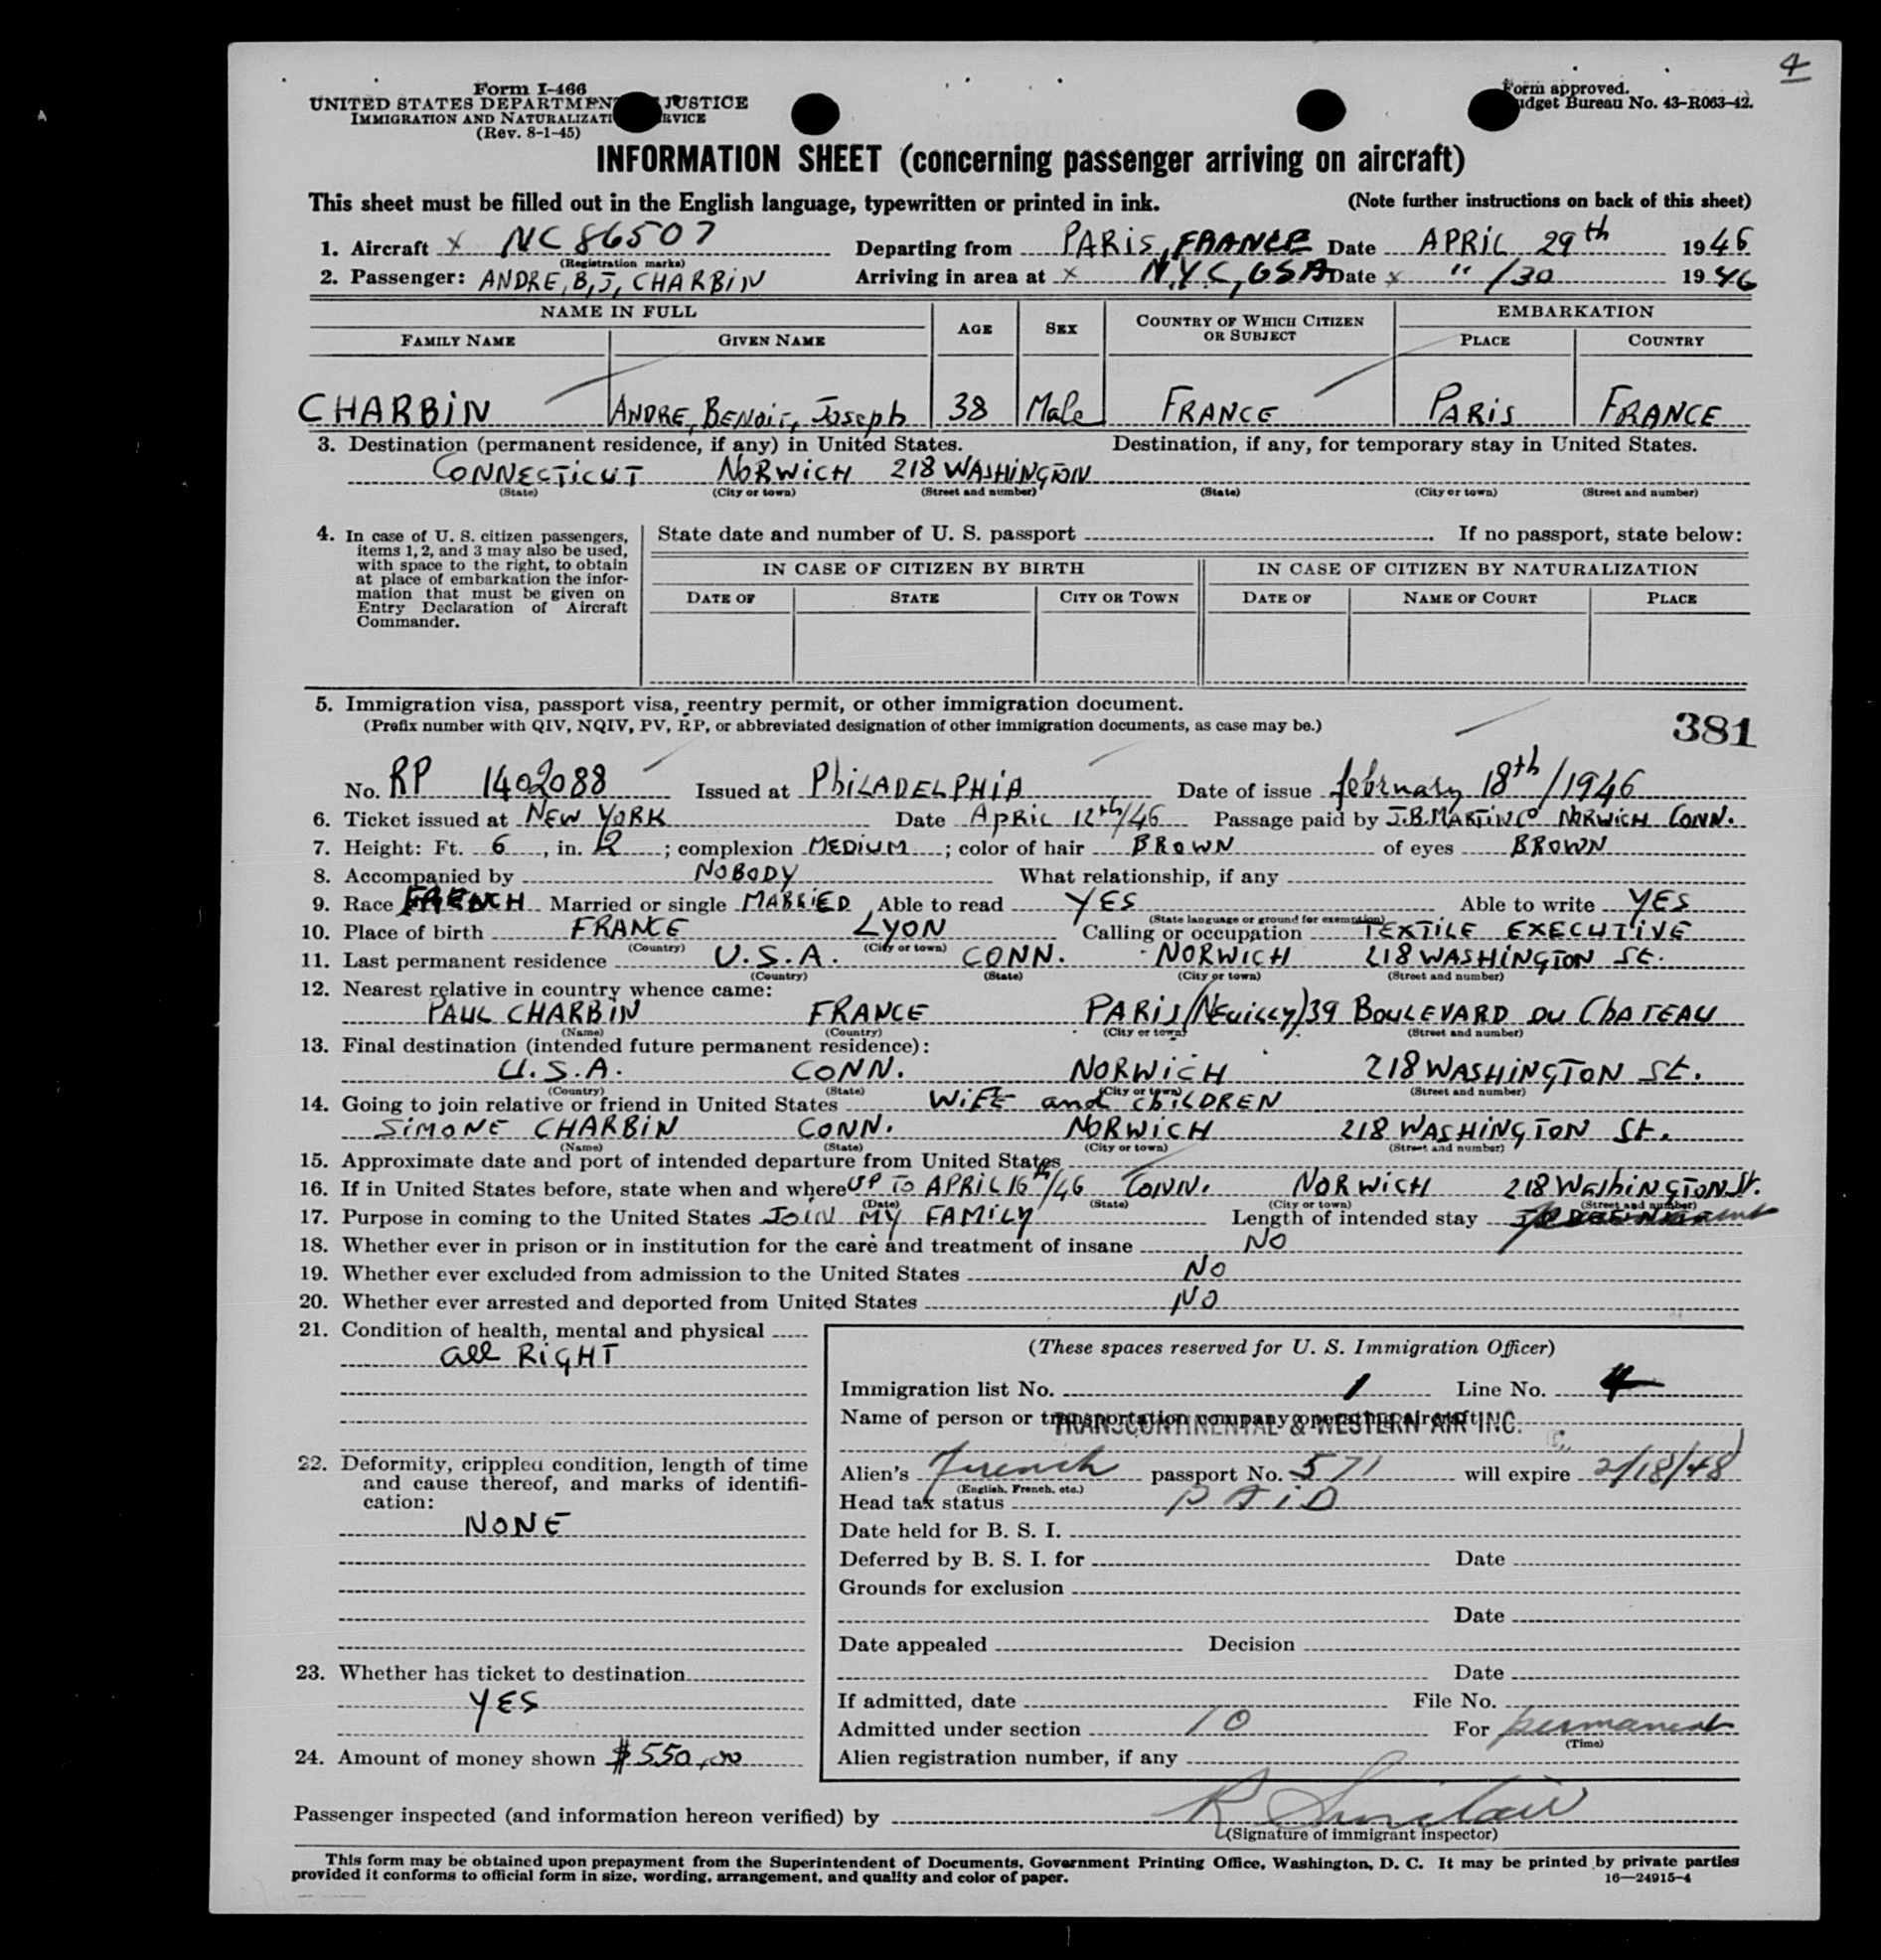 4
Form I-466
UNITED STATES DEPARTMEN JUSTICE
IMMIGRATION AND NATURALIZATI RVICE
(Rev. 8-1-45)
Form approved.
udget Bureau No. 43-R063-42.
INFORMATION SHEET (concerning passenger arriving on aircraft)
This sheet must be filled out in the English language, typewritten or printed in ink. (Note further instructions on back of this sheet)
1. Aircraft X NC 86507 Departing from PARIS, FRANCE Date APRIL 29th 1946
(Registration marks)
2. Passenger: ANDRE, B, J, CHARBIN Arriving in area at X N.Y.C, USA Date X " /30 1946
NAME IN FULL AGE SEX COUNTRY OF WHICH CITIZEN OR SUBJECT EMBARKATION
FAMILY NAME GIVEN NAME PLACE COUNTRY
CHARBIN ANDRE, BENOIT, Joseph 38 Male FRANCE PARIS FRANCE
3. Destination (permanent residence, if any) in United States. Destination, if any, for temporary stay in United States.
CONNECTICUT NORWICH 218 WASHINGTON
(State) (City or town) (Street and number) (State) (City or town) (Street and number)
4. In case of U. S. citizen passengers, items 1, 2, and 3 may also be used, with space to the right, to obtain at place of embarkation the information that must be given on Entry Declaration of Aircraft Commander.
State date and number of U. S. passport If no passport, state below:
IN CASE OF CITIZEN BY BIRTH IN CASE OF CITIZEN BY NATURALIZATION
DATE OF STATE CITY OR TOWN DATE OF NAME OF COURT PLACE
5. Immigration visa, passport visa, reentry permit, or other immigration document.
(Prefix number with QIV, NQIV, PV, RP, or abbreviated designation of other immigration documents, as case may be.)
381
No. RP 1402088 Issued at PhiLADELPHIA Date of issue february 18th/1946
6. Ticket issued at NEW YORK Date APRIL 12th/46 Passage paid by J.B. MARTIN Co NORWICH CONN.
7. Height: Ft. 6, in. 2; complexion MEDIUM; color of hair BROWN of eyes BROWN
8. Accompanied by NOBODY What relationship, if any
9. Race FRENCH Married or single MARRIED Able to read YES Able to write YES
(State language or ground for exemption)
10. Place of birth FRANCE LYON Calling or occupation TEXTILE EXECUTIVE
(Country) (City or town)
11. Last permanent residence U.S.A. CONN. NORWICH 218 WASHINGTON St.
(Country) (State) (City or town) (Street and number)
12. Nearest relative in country whence came:
PAUL CHARBIN FRANCE PARIS/(NEuiLLy) 39 BOULEVARD DU ChATEAU
(Name) (Country) (City or town) (Street and number)
13. Final destination (intended future permanent residence):
U.S.A. CONN. NORWICH 218 WASHINGTON St.
(Country) (State) (City or town) (Street and number)
14. Going to join relative or friend in United States WIFE and ChILDREN
SIMONE CHARBIN CONN. NORWICH 218 WASHINGTON St.
(Name) (State) (City or town) (Street and number)
15. Approximate date and port of intended departure from United States
16. If in United States before, state when and where UP TO APRIL 16th/46 CONN. NORWICH 218 WashINGTON St.
(Date) (State) (City or town) (Street and number)
17. Purpose in coming to the United States JOIN MY FAMILY Length of intended stay
18. Whether ever in prison or in institution for the care and treatment of insane NO
19. Whether ever excluded from admission to the United States NO
20. Whether ever arrested and deported from United States NO
21. Condition of health, mental and physical
all RIGHT
22. Deformity, crippled condition, length of time and cause thereof, and marks of identification:
NONE
23. Whether has ticket to destination
YES
24. Amount of money shown $550,00
(These spaces reserved for U. S. Immigration Officer)
Immigration list No. 1 Line No. 4
Name of person or transportation company operating aircraft
TRANSCONTINENTAL & WESTERN AIR INC.
Alien's French passport No. 571 will expire 2/18/48
(English, French, etc.)
Head tax status PAID
Date held for B. S. I.
Deferred by B. S. I. for Date
Grounds for exclusion
Date
Date appealed Decision
Date
If admitted, date File No.
Admitted under section 10 For permanent
(Time)
Alien registration number, if any
Passenger inspected (and information hereon verified) by R Sinclair
(Signature of immigrant inspector)
This form may be obtained upon prepayment from the Superintendent of Documents, Government Printing Office, Washington, D. C. It may be printed by private parties
provided it conforms to official form in size, wording, arrangement, and quality and color of paper. 16—24915-4